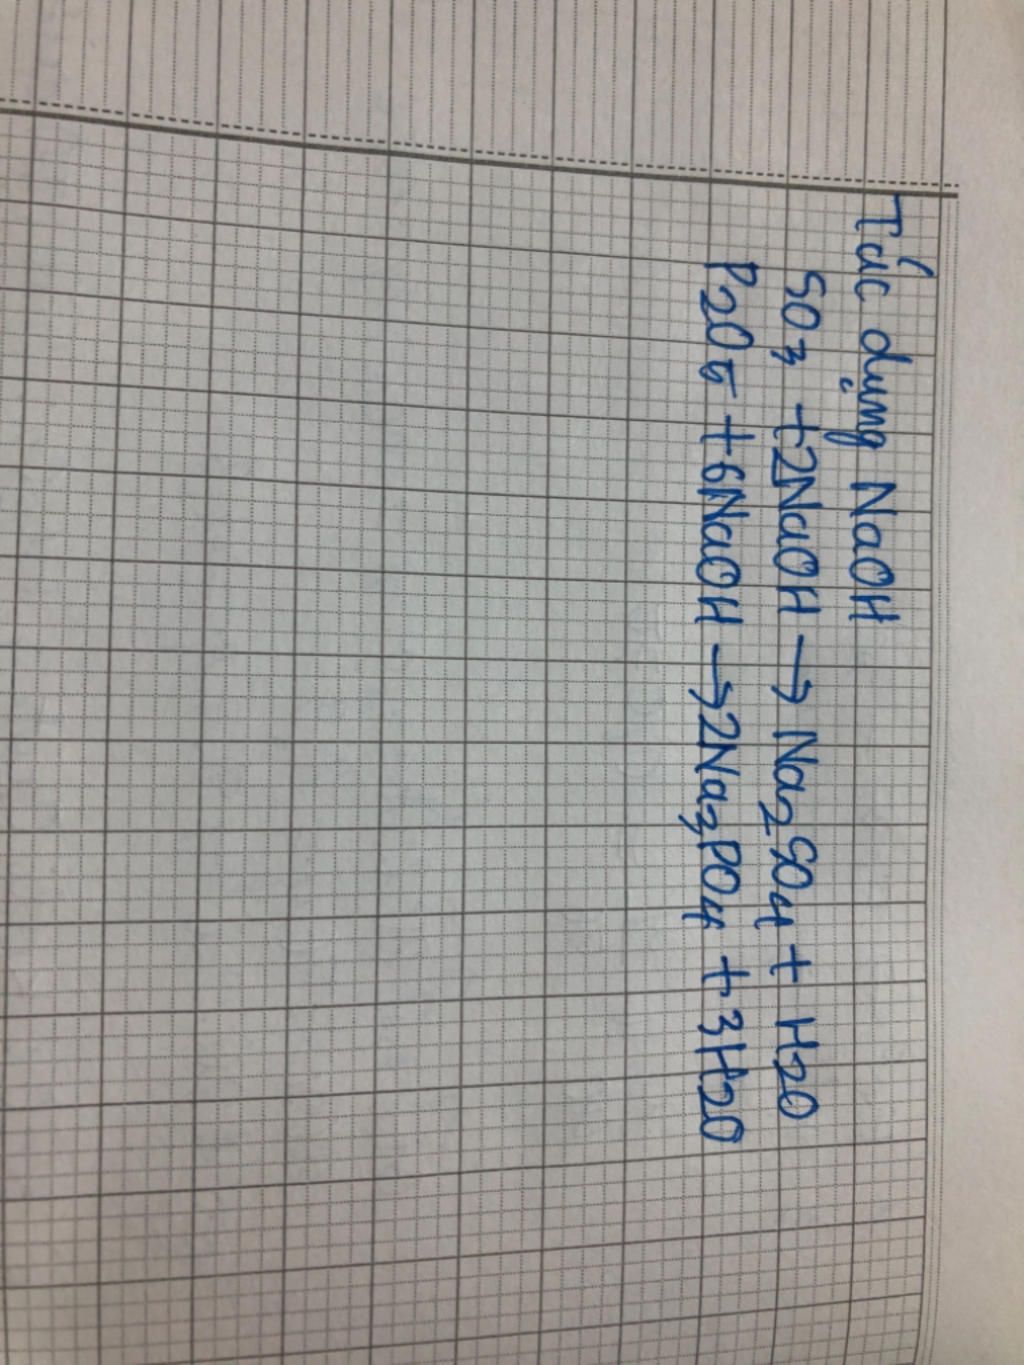 Tác dụng NaOH
SO3 +2NaOH → Na2SO4 + H2O
P2O5 +6NaOH → 2Na3PO4 + 3H2O